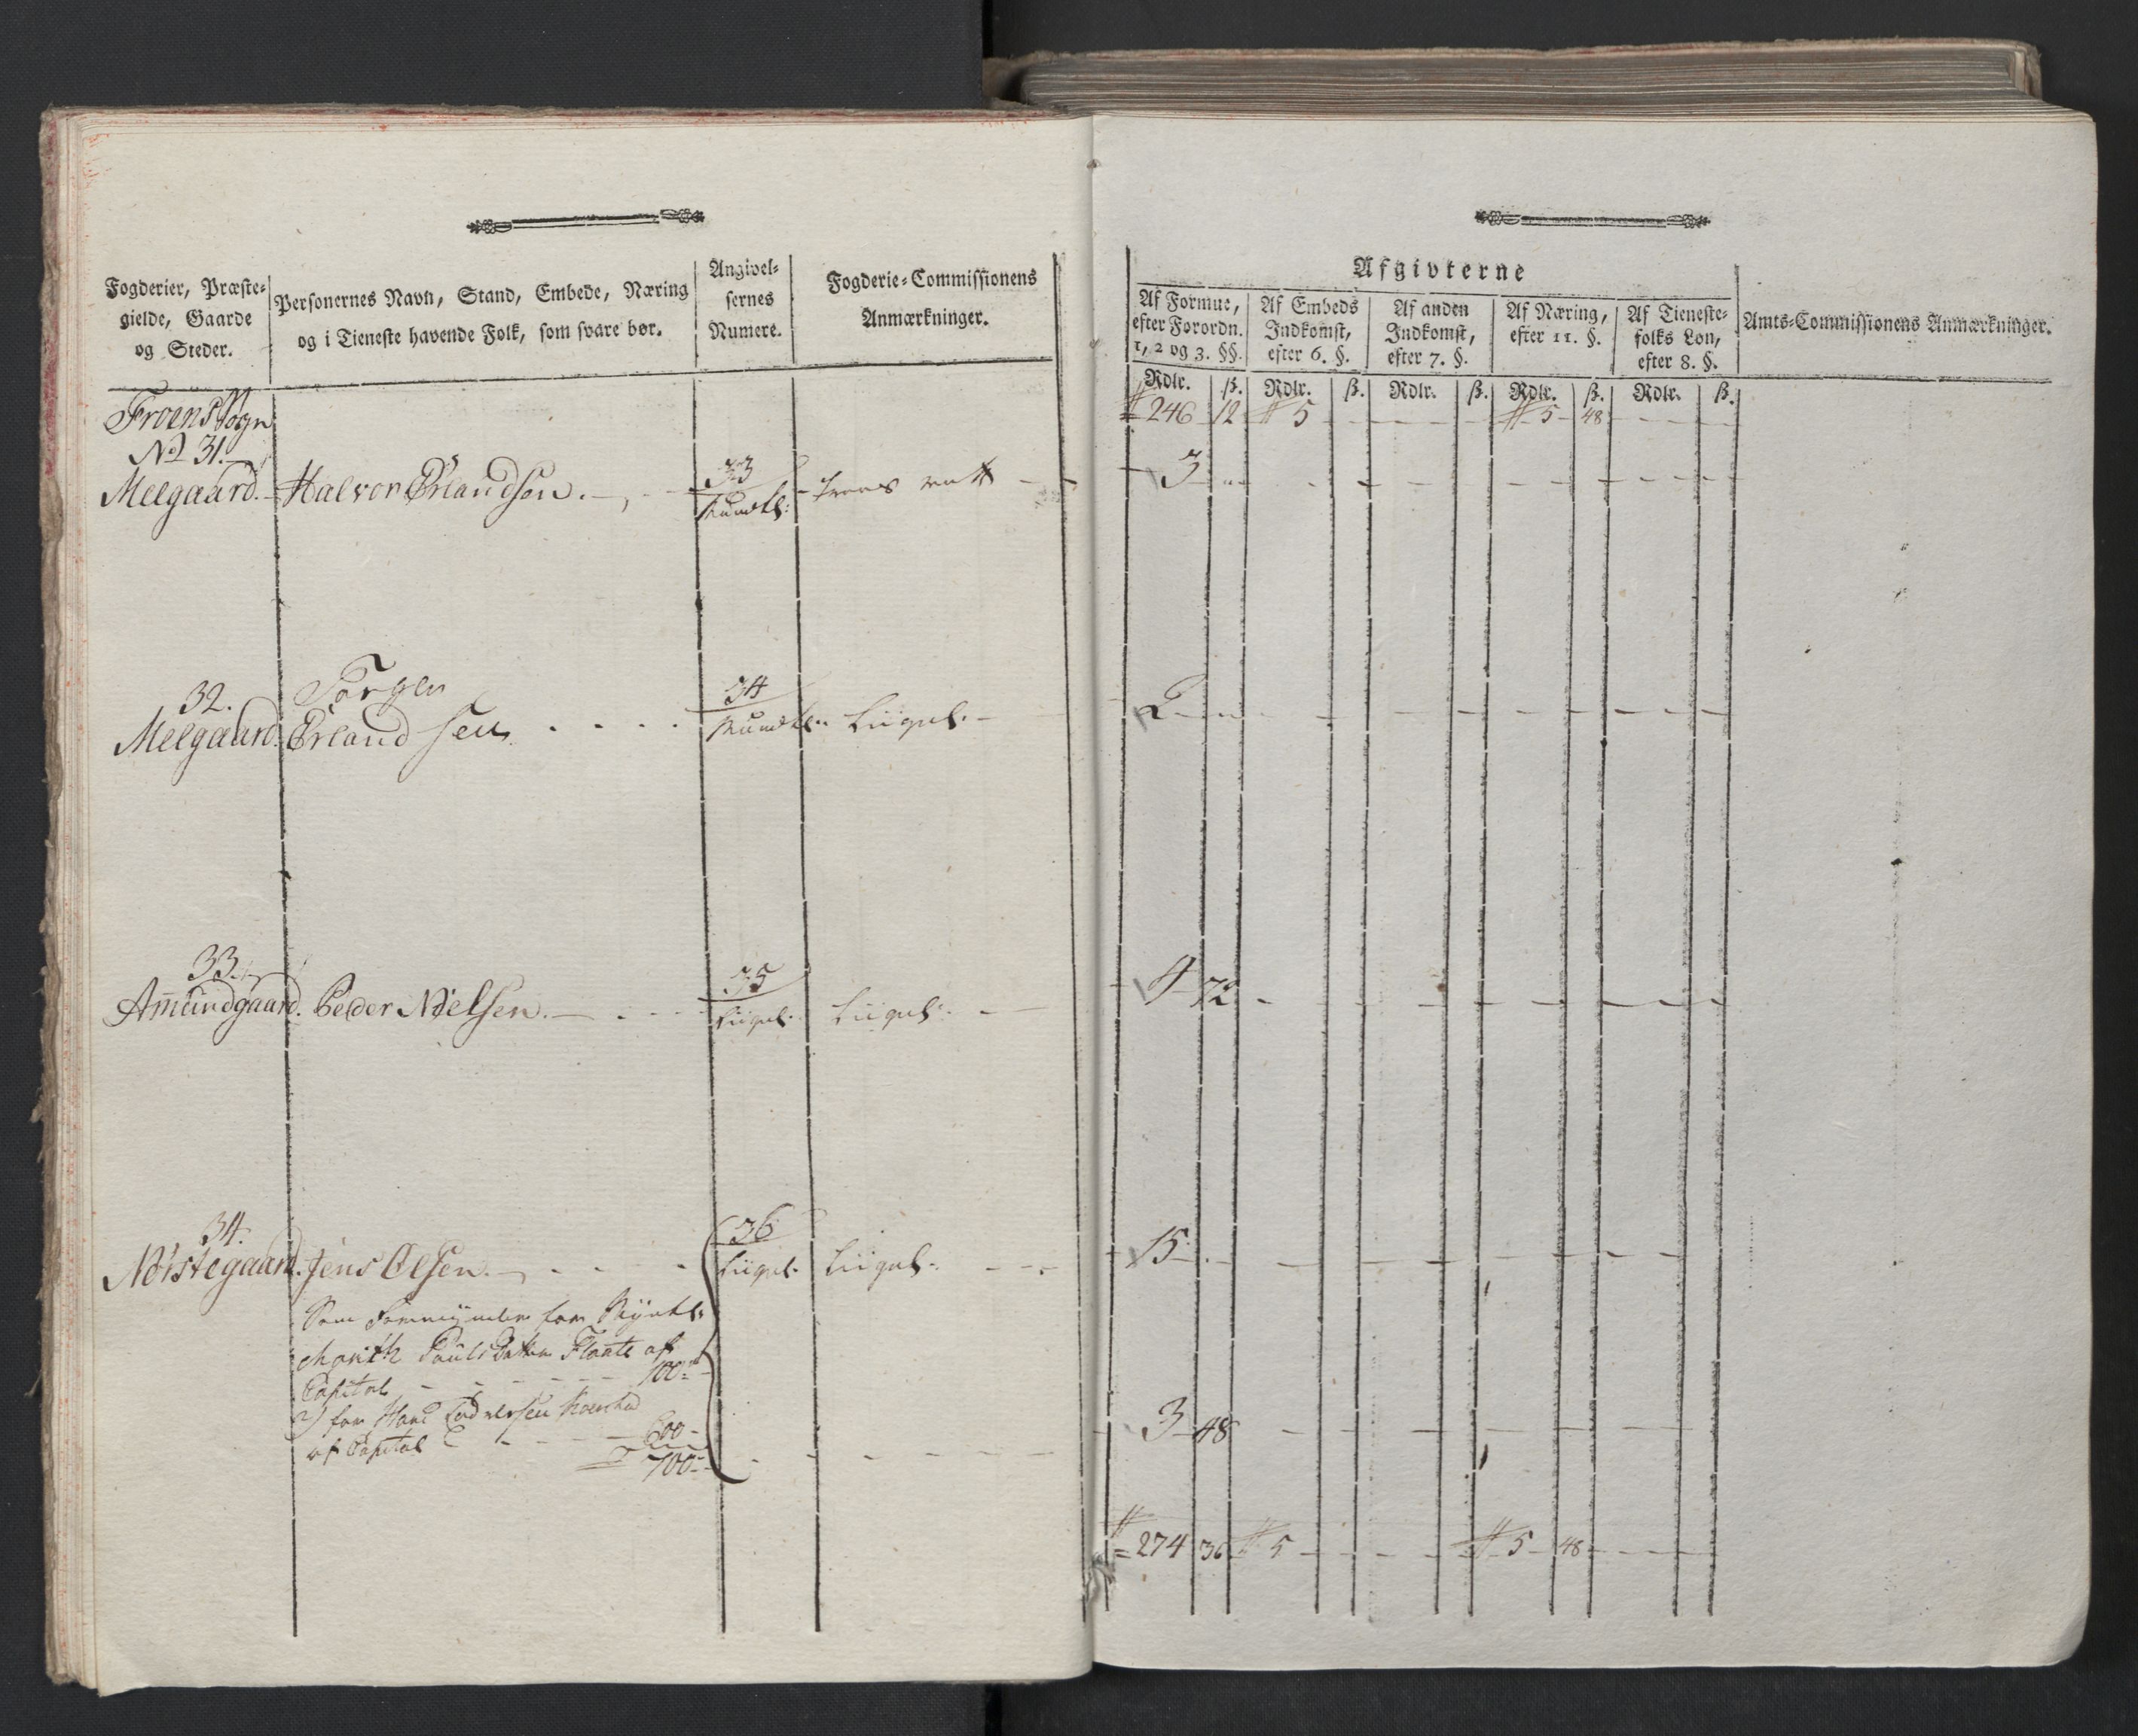 Fogderier, Præste-
gielde, Gaarde
og Steder.
Personernes Navn, Stand, Embede, Næring
og i Tieneste havende Folk, som svare bør.
Angivel-
sernes
Numere.
Fogderie-Commissionens
Anmærkninger.
Froens Sogn
No 31.
Melgaard. Halvor Erlandsen.
33
Mundtl:
32. Torger
Melgaard. Erlandsen
34
Mundtl: Ligel.
33.
Amundgaard. Peder Nielsen.
35
Ligel. Ligel.
34.
Nörstegaard. Jens Olsen.
36
Ligel. Ligel.
Som Formynder for
Marith Pauls Datter af
Capital 100
2) for Hans
af Capital 600
700
Afgivterne
Af Formue,
efter Forordn.
1, 2 og 3. §§.
Af Embeds
Indkomst,
efter 6. §.
Af anden
Indkomst,
efter 7. §.
Af Næring,
efter 11. §.
Af Tieneste-
folks Løn,
efter 8. §.
Amts-Commissionens Anmærkninger.
Rdlr. ß. Rdlr. ß. Rdlr. ß. Rdlr. ß. Rdlr. ß.
246 12 5 5 48
3
2
4 72
15
3 48
274 36 5 5 48